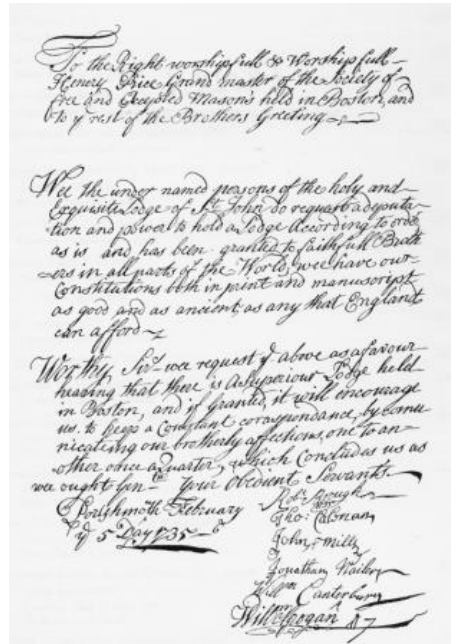 To the Right worshipfull & Worshipfull
Henery Price Grand master of the Society of
free and Excepted Masons held in Boston, and
to yͤ rest of the Brothers Greeting
Wee the under named persons of the holy and
Exquisite Lodge of Sᵗ John do request a deputa-
tion and power to hold a Lodge According to order
as is and has been granted to faithfull Broth
ers in all parts of the World, wee have our
Constitutions both in print and manuscript
as good and as ancient as any that England
can afford
Worthy, Sir wee request yͤ above as a favour
hearing that there is A Superiour Lodge held
in Boston, and if Granted, it will encourage
us to keep a Constant coraspondance, by comu-
nicating our brotherly affections, one to an-
other once a Quarter, which Concludes us as
wee ought Your Obedient Servants
Portsmoth February
yͤ 5 Day 1735
Robᵗ
Tho: Colman
John Mills
Jonathan
Willᵐ Canterbury
Willᵐ